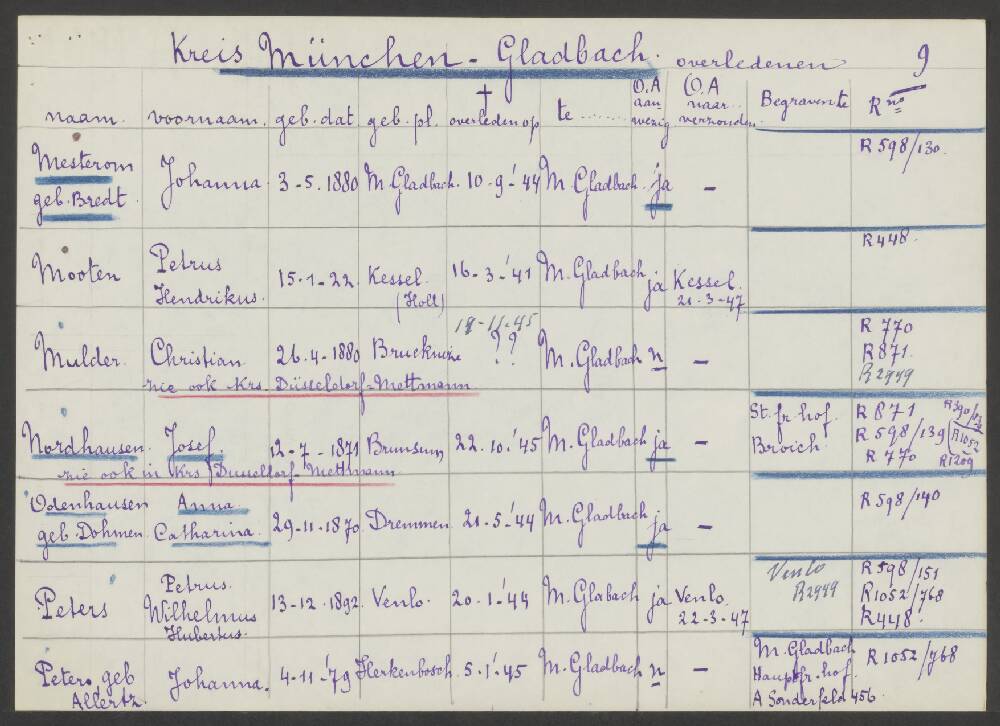 Kreis München-Gladbach. overledenen 9
naam. voornaam. geb.dat. geb.pl. † overleden op te ........ O.A aanwezig O.A naar verzonden Begraven te R no
Mesterom geb. Bredt. Johanna. 3-5.1880 M.Gladbach. 10-9-'44 M.Gladbach. ja - R598/130.
Mooten Petrus Hendrikus. 15-1-22. Kessel. (Holl) 16-3-'41 M.Gladbach ja Kessel. 21-3-47 R448.
Mulder. Christian 26.4-1880 17-11-45 ? ? M.Gladbach n - R 770 R871. R2949
zie ook Krs. Düsseldorf-Mettmann
Nordhausen. Josef 12-7-1871 Brunsum 22.10.'45 M.Gladbach ja - St.fr.hof. Broich R871 R598/139 R 770 R390/ R1052 R1209
zie ook in Krs Dusseldorf-Mettmann
Odenhausen geb. Dohmen Anna Catharina. 29-11-1870 Dremmen 21-5-'44 M.Gladbach ja - R598/140
Peters Petrus. Wilhelmus Hubertus. 13-12.1892. Venlo. 20-1-'44 M.Glabach ja Venlo. 22-3-'47 Venlo R2949 R598/151 R1052/768 R448.
Peters geb Allertz. Johanna. 4-11-'79 Herkenbosch. 5.1-'45 M.Gladbach n - M.Gladbach Hauptfr.hof. A Sonderfeld 456. R1052/768